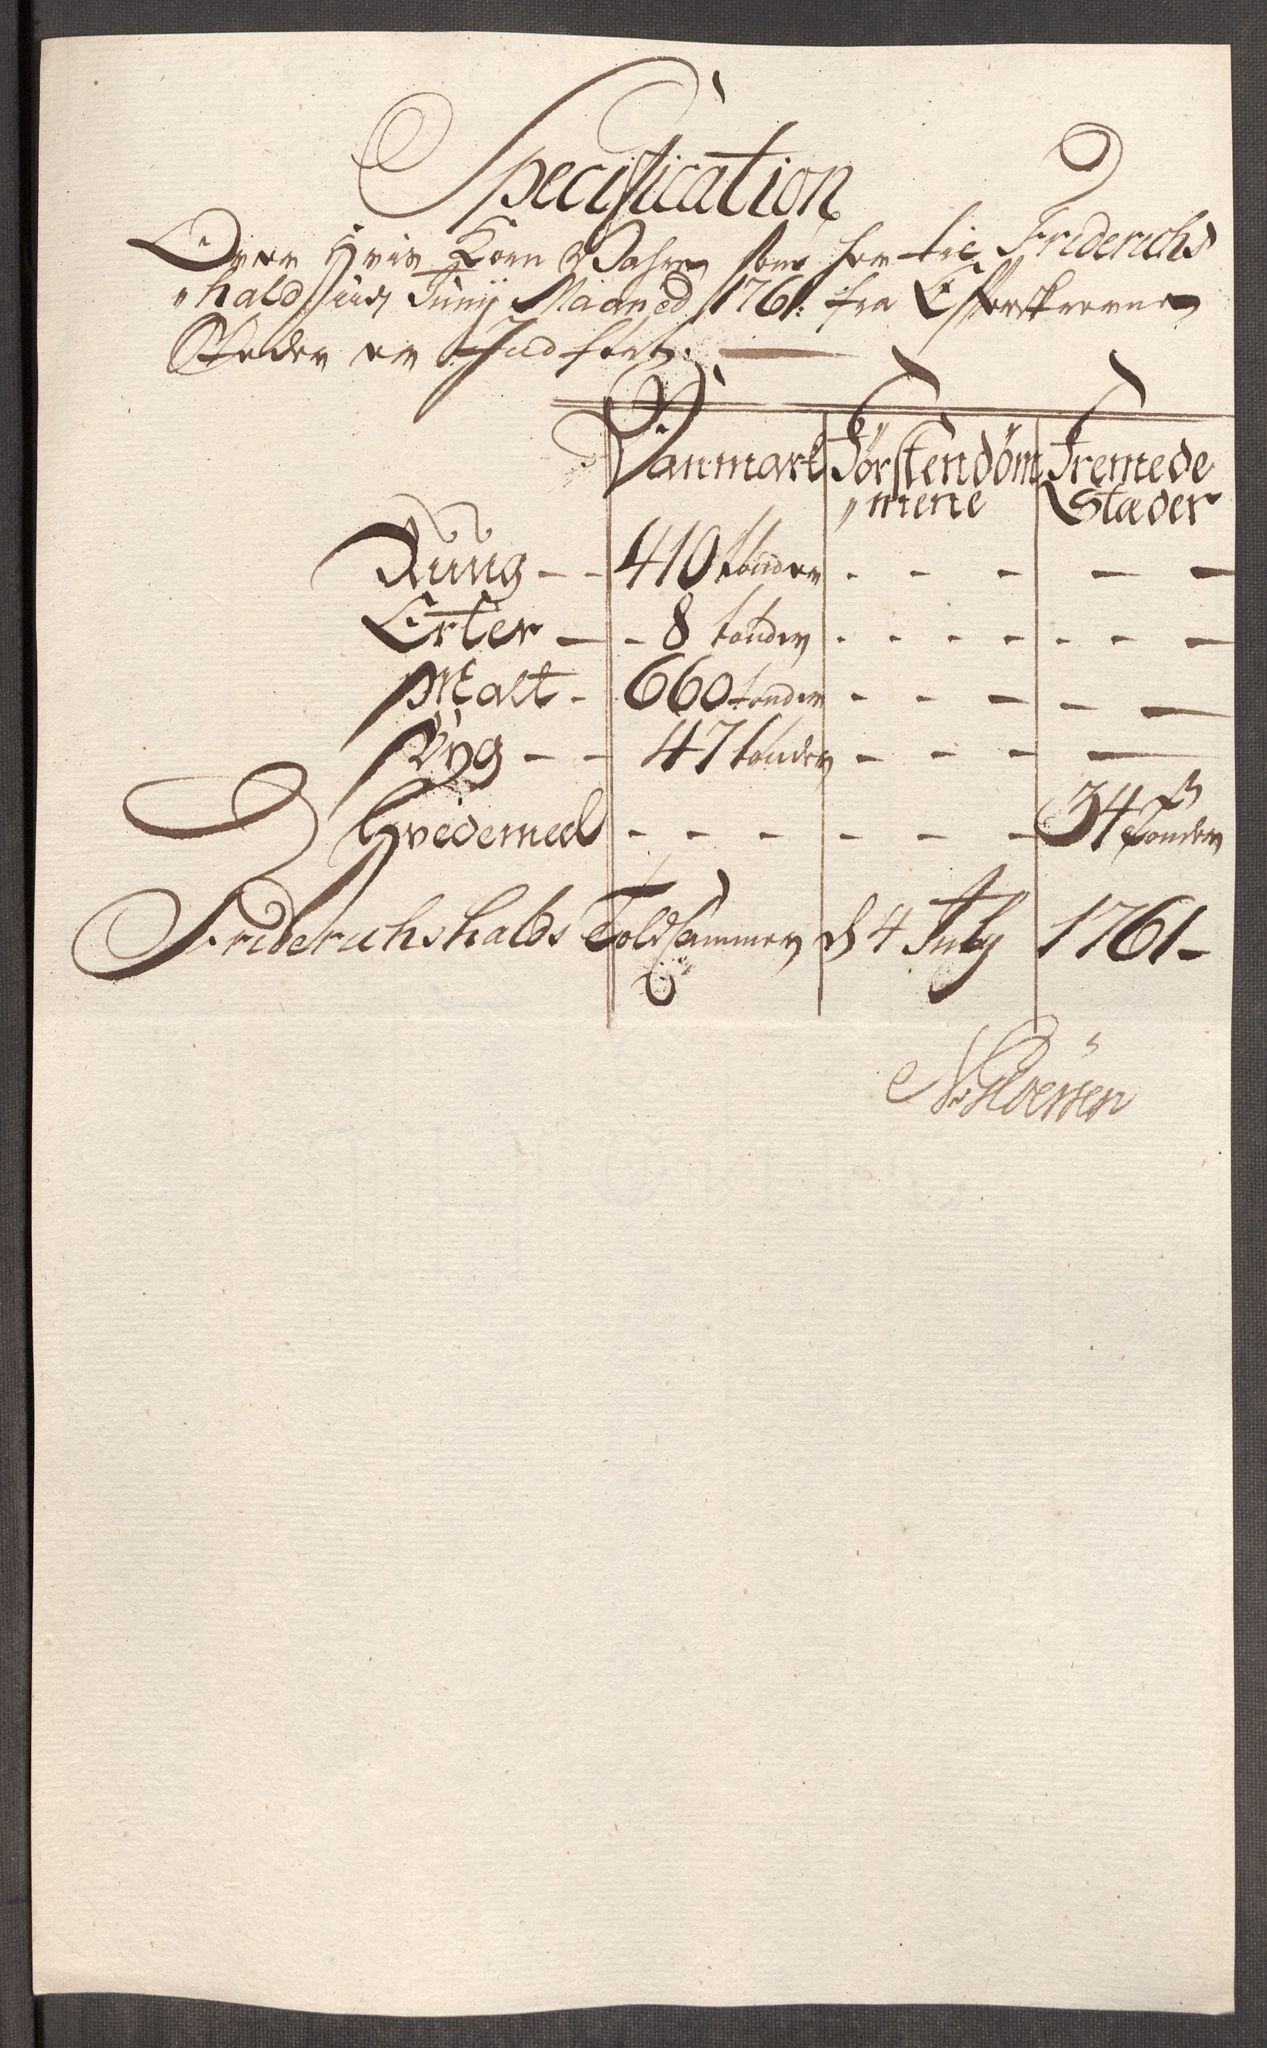 Specification
Over Hvis Korn Vahre som her til Friderichs
"hald siids Junij Maaned 1761. fra Efterskrevne
Steder er Indført.
Danmark Førstendøm Fremede
"mene Stæder
Rüng - - 410 tønder - - - - -
Erter - - 8 tønder - - - - - - -
Malt - 660 tønder - - - - -
Byg - - 47 tønder - - - -
Hvedemeel - - - - - - 34 tønder
Friderichshalds Told Cammer d 4 July 1761-